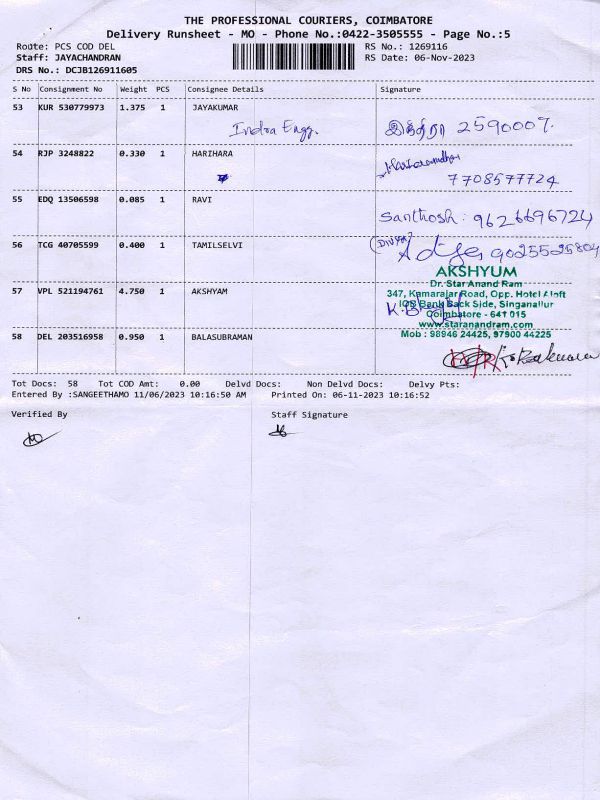 THE PROFESSIONAL COURIERS, COIMBATORE
Delivery Runsheet - MO - Phone No.:0422-3505555 - Page No.:5
Route: PCS COD DEL
RS No.: 1269116
Staff: JAYACHANDRAN
RS Date: 06-Nov-2023
DRS No.: DCJB126911605
S No Consignment No Weight PCS Consignee Details Signature
53 KUR 530779973 1.375 1 JAYAKUMAR
Indra Engg. இந்திரா 2590007.
54 RJP 3248822 0.330 1 HARIHARA
7708577724
55 EDQ 13506598 0.085 1 RAVI
Santhosh: 9626696724
56 TCG 40705599 0.400 1 TAMILSELVI
9025525804
AKSHYUM
Dr. Star Anand Ram
57 VPL 521194761 4.750 1 AKSHYAM
347, Kamarajar Road, Opp. Hotel Aloft
Bank Back Side, Singanallur
Coimbatore - 641 015
www.staranandram.com
Mob : 98946 24425, 97900 44225
58 DEL 203516958 0.950 1 BALASUBRAMAN
Tot Docs: 58 Tot COD Amt: 0.00 Delvd Docs: Non Delvd Docs: Delvy Pts:
Entered By :SANGEETHAMO 11/06/2023 10:16:50 AM Printed On: 06-11-2023 10:16:52
Verified By Staff Signature